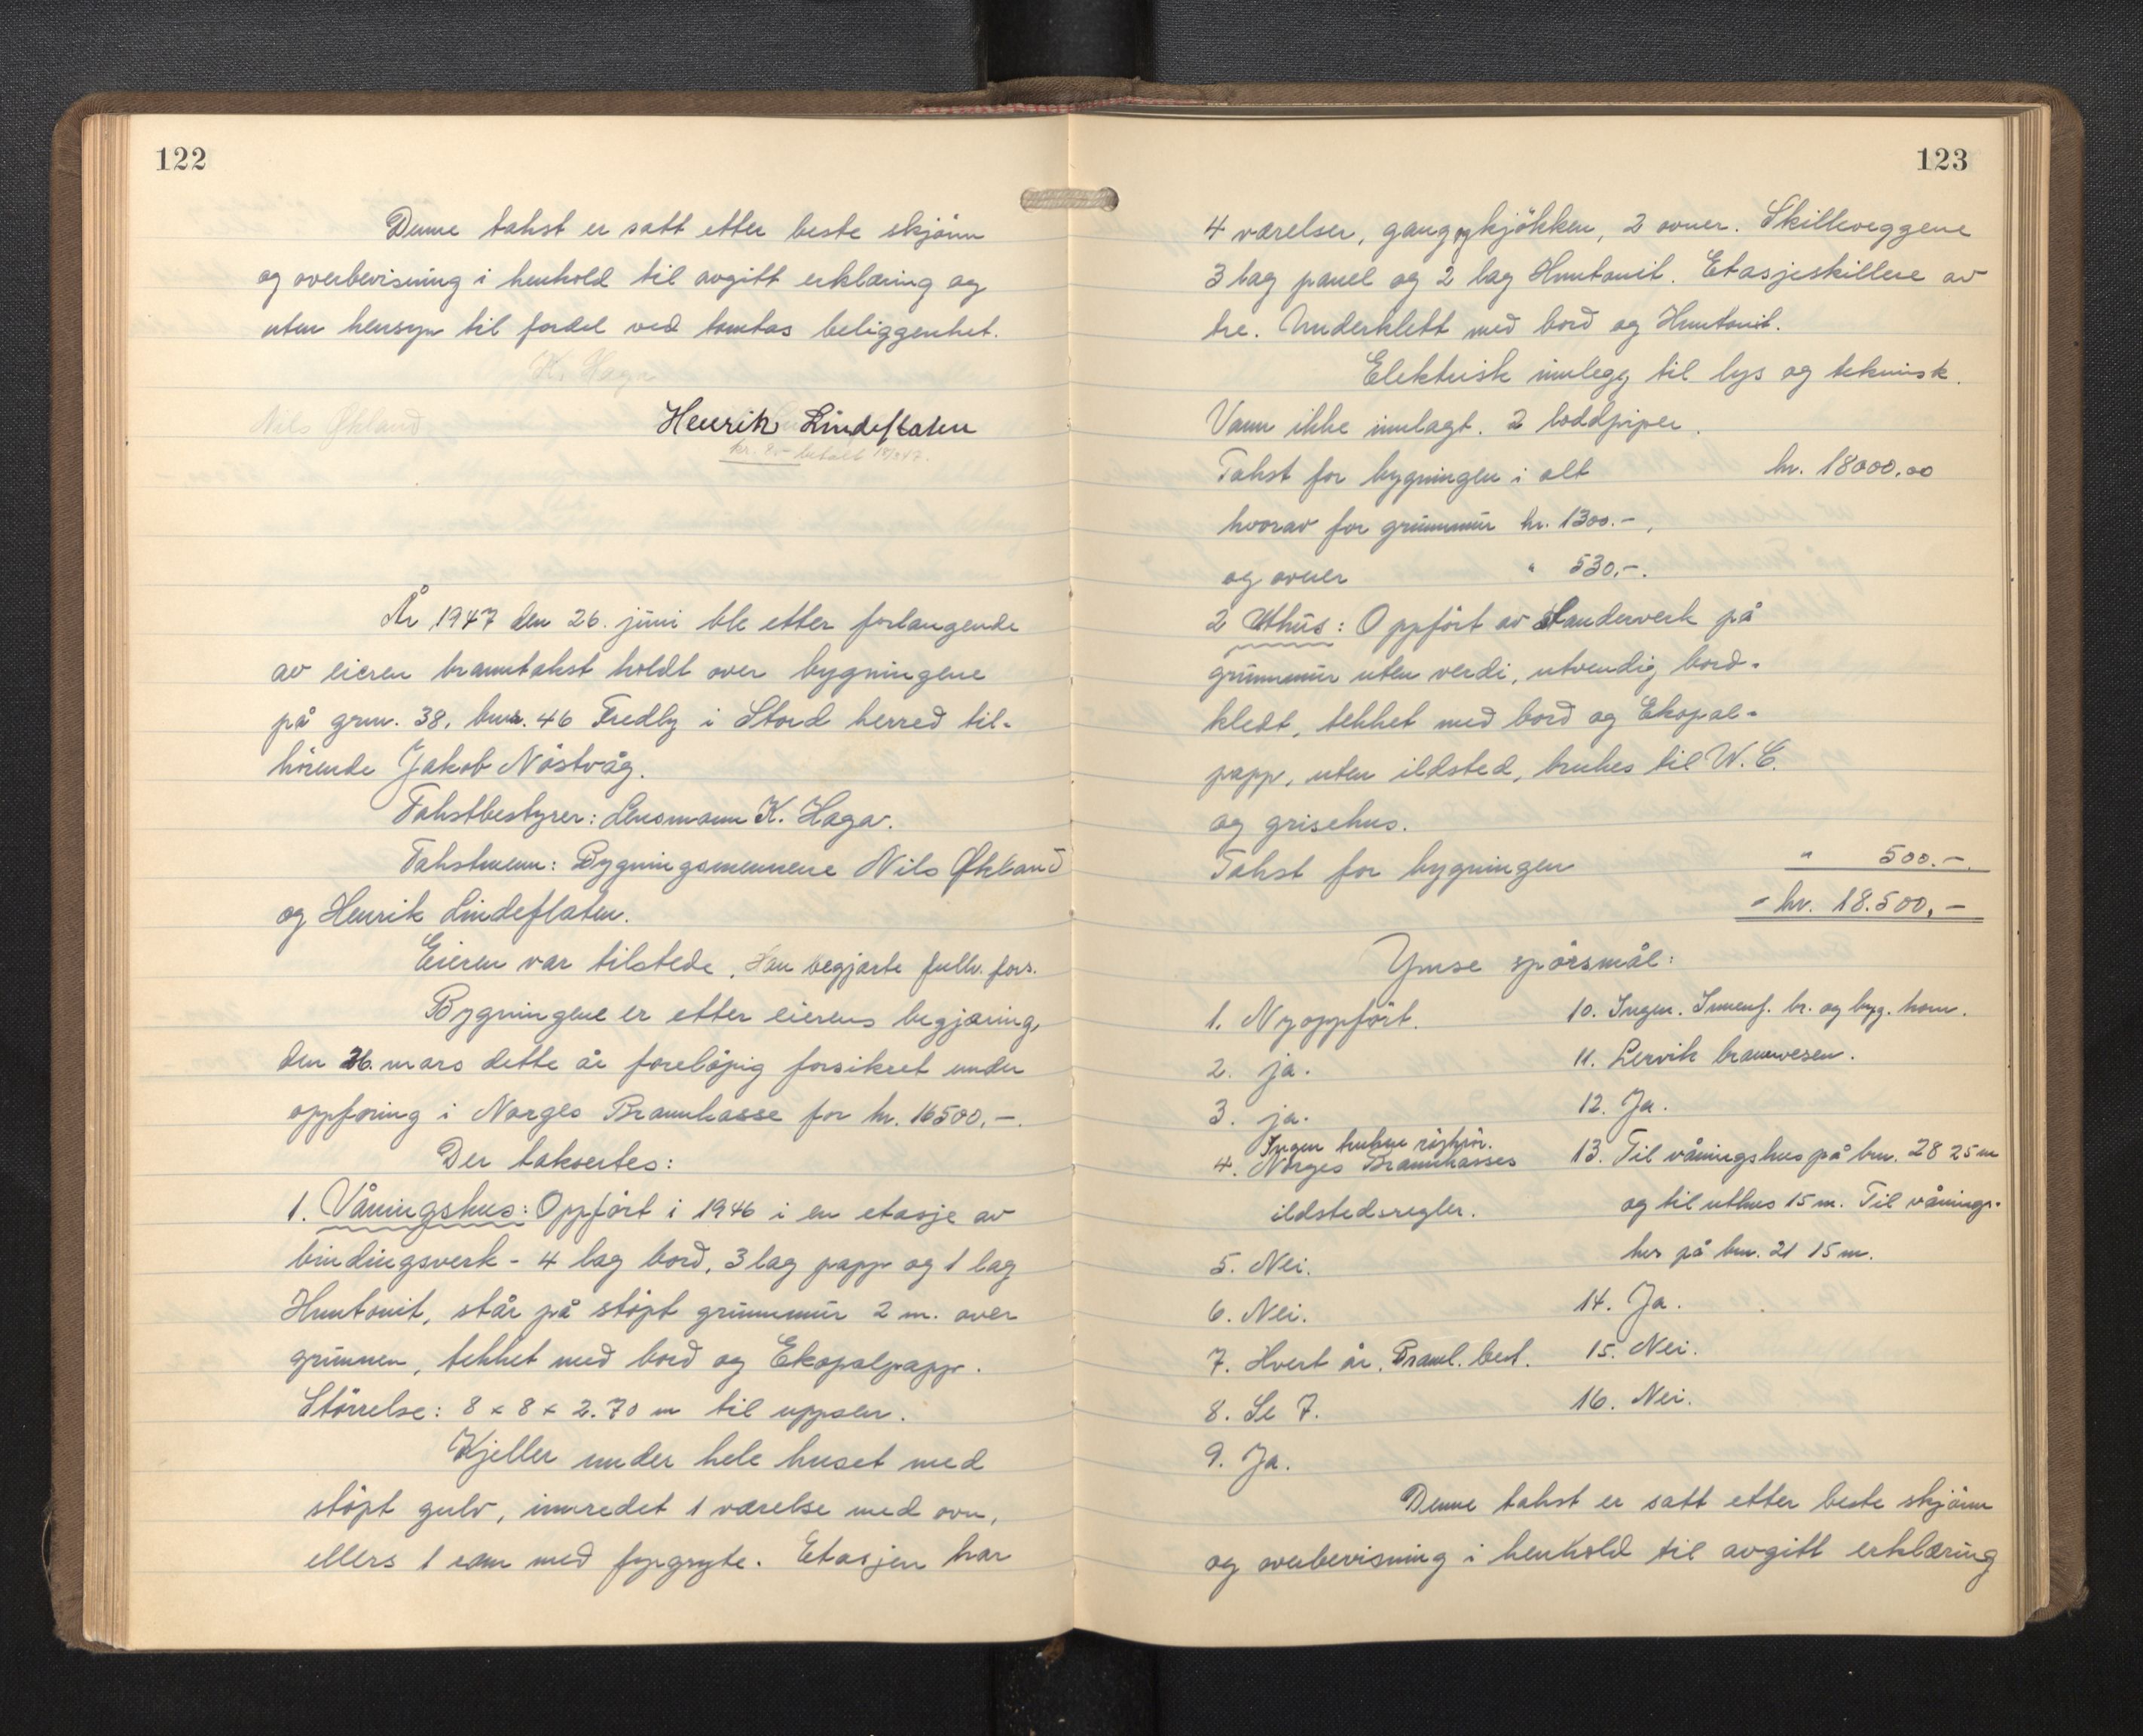 122
Denne takst er satt etter beste skjönn
og overbevisning i henhold til avgitt erklæring og
uten hensyn til fordel ved tomtas beliggenhet.
K. Haga
Nils Økland
Henrik Lindeflaten
kr. betalt
År 1947 den 26. juni ble etter forlangende
av eieren branntakst holdt over bygningene
på grnr. 38, bnr. 46 Fredly i Stord herred til-
hörende Jakob Nöstvåg.
Takstbestyrer: Lensmann K. Haga.
Takstmenn: Bygningsmennene Nils Økland
og Henrik Lindeflaten.
Eieren var tilstede. Han begjærte fullv. fors.
Bygningene er etter eierens begjæring,
den 26. mars dette år foreløpig forsikret under
oppföring i Norges Brannkasse for kr. 16500,-.
Der taksertes:
1. Våningshus: Oppfört i 1946 i en etasje av
bindingsverk - 4 lag bord, 3 lag papp og 1 lag
Huntonit, står på stöpt grunnmur 2 m. over
grunnen, tekket med bord og Ekopalpapp.
Störrelse: 8 x 8 x 2.70 m til uppsen.
Kjeller under hele huset med
stöpt gulv, innredet 1 værelse med ovn,
ellers 1 rom med fyrgryte. Etasjen har
123
4 værelser, gang og kjökken, 2 ovner. Skilleveggene
3 lag panel og 2 lag Huntonit. Etasjeskillere av
tre. Underkledt med bord og Huntonit.
Elektrisk innlegg til lys og teknisk.
Vann ikke innlagt. 2 loddpiper.
Takst for bygningen i alt kr. 18000,00
hvorav for grunnmur kr. 1300.-,
og ovner " 530,-.
2 Uthus: Oppfört av standerverk på
grunnmur uten verdi, utvendig bord-
kledt, tekket med bord og Ekopal-
papp, uten ildsted, brukes til W.C.
og grisehus.
Takst for bygningen " 500.-
kr. 18.500,-
Ymse spörsmål:
1. Nyoppfört.
2. ja.
3. ja.
Ingen
4. Norges Brannkasses
ildstedsregler.
5. Nei.
6. Nei.
7. Hvert år. Branl. best.
8. Se 7.
9. Ja.
10. Ingen. Innenf. br. og byg. kom.
11. Lervik brannvesen.
12. Ja.
13. Til våningshus på bnr. 28 25 m
og til uthus 15 m. Til vånings-
hus på bnr. 21 15 m.
14. Ja.
15. Nei.
16. Nei.
Denne takst er satt etter beste skjönn
og overbevisning i henhold til avgitt erklæring